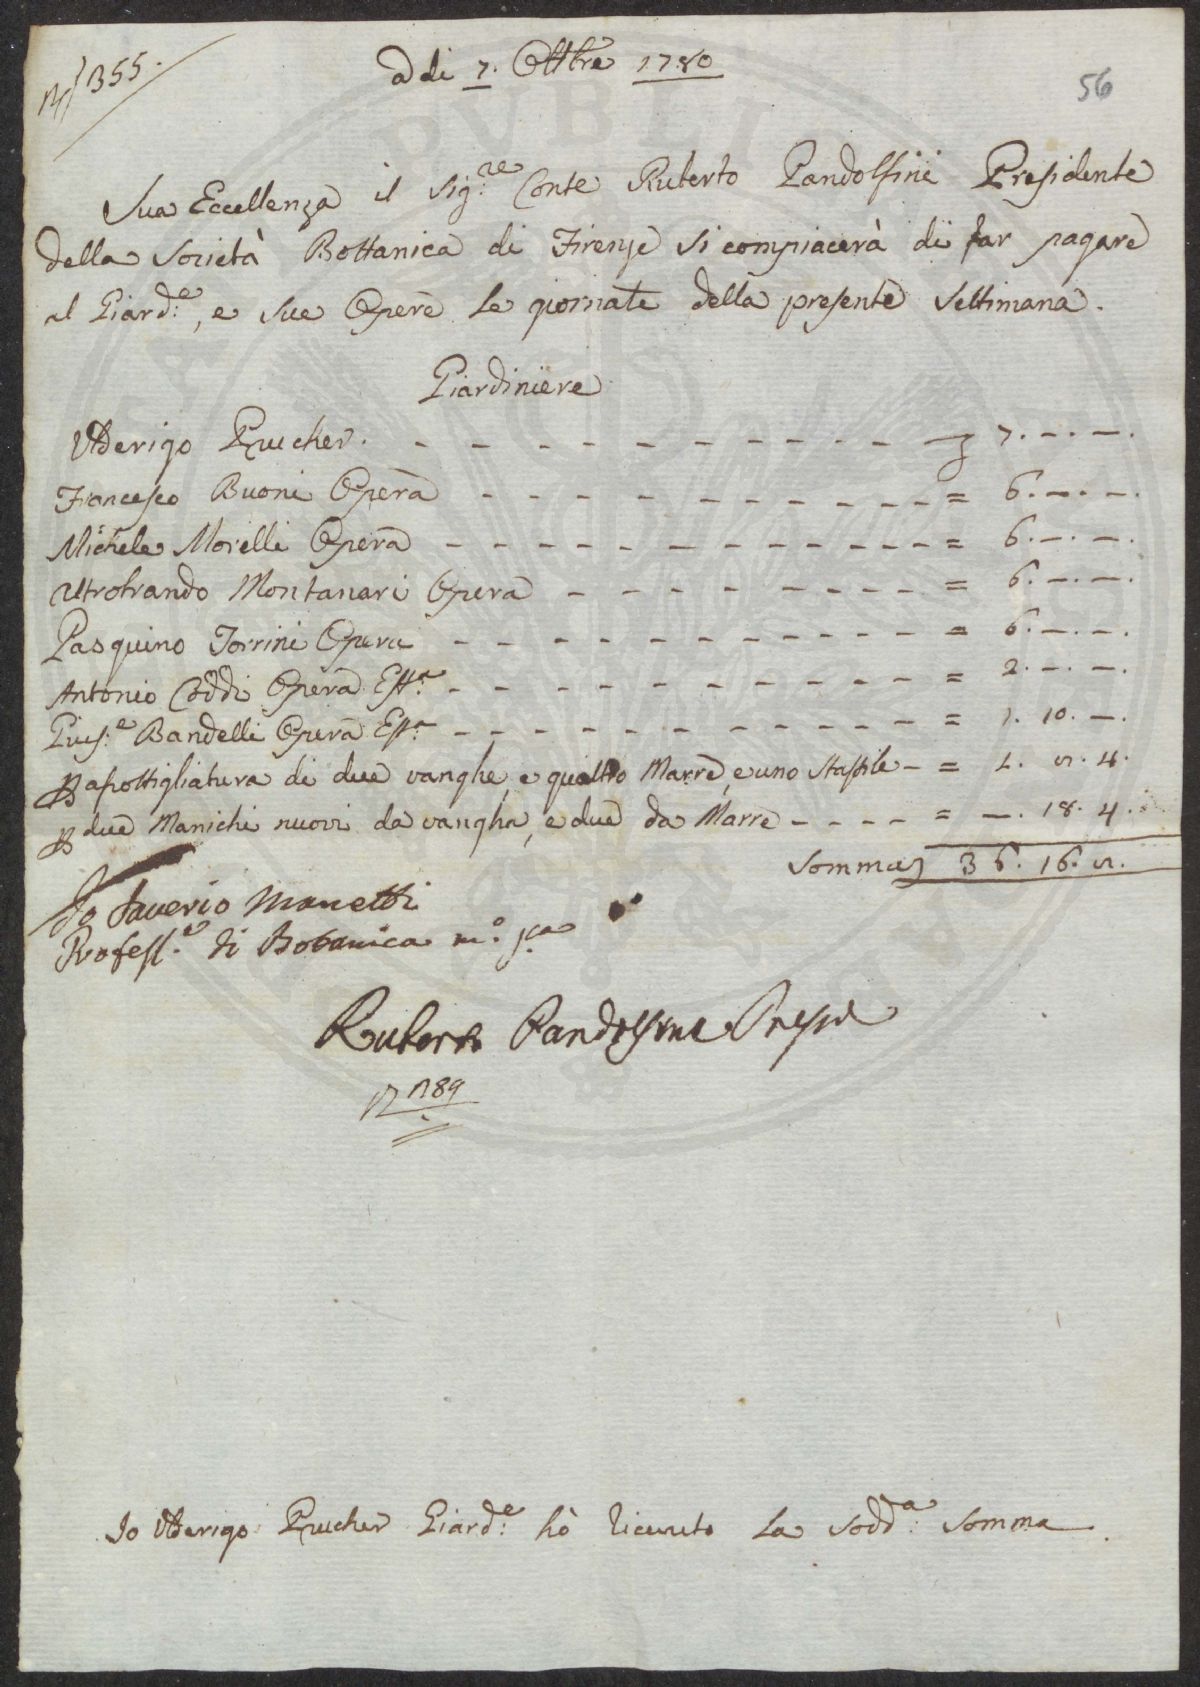 N 355.
a di 7. Ottbre 1780
56
Sua Eccellenza il Sig:re Conte Ruberto Pandolfini Presidente
della Società Bottanica di Firenze si compiacerà di far pagare
al Giard:e, e sue Opere le giornate della presente Settimana.
Giardiniere
Uberigo Prucher. - - - - - - - - - - - - 7. - . - .
Francesco Buoni Opera - - - - - - - - - - - = 6. - . - .
Michele Morelli Opera - - - - - - - - - - - - = 6. - . - .
Montanari Opera - - - - - - - - - = 6. - . - .
Pasquino Torrini Opera - - - - - - - - - - - - = 6. - . - .
Antonio Coddi Opera - - - - - - - - - - - - = 2. - . - .
Gius:e Bandelli Opera - - - - - - - - - - - - = 1. 10. - .
di due vanghe, e quattro Marre, e uno - = 4.
due Manichi nuovi da vangha, e due da Marre - - - - = - . 18. 4.
Somma 36. 16.
Io Saverio Manetti
Profess:e di Botanica m:o p:a
Ruberto Pandolfini Presid
N 189
Io Uberigo Prucher Giard:e hò ricevuto la sodd:a somma